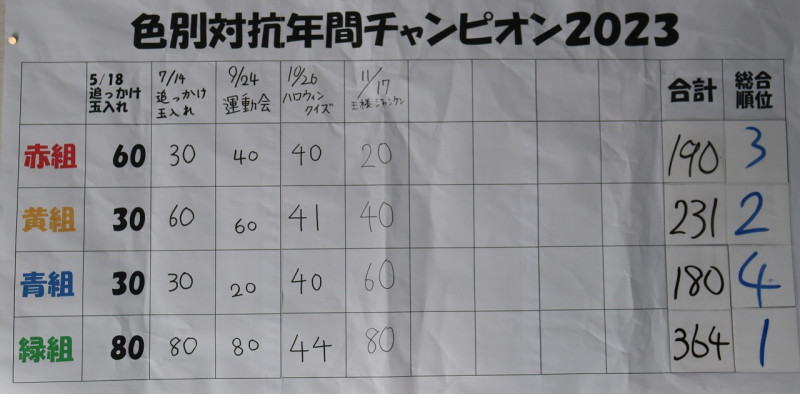 色別対抗年間チャンピオン2023
5/18 追っかけ玉入れ 7/14 追っかけ玉入れ 9/24 運動会 10/26 ハロウィンクイズ 11/17 王様ジャンケン 合計 総合順位
赤組 60 30 40 40 20 190 3
黄組 30 60 60 41 40 231 2
青組 30 30 20 40 60 180 4
緑組 80 80 80 44 80 364 1